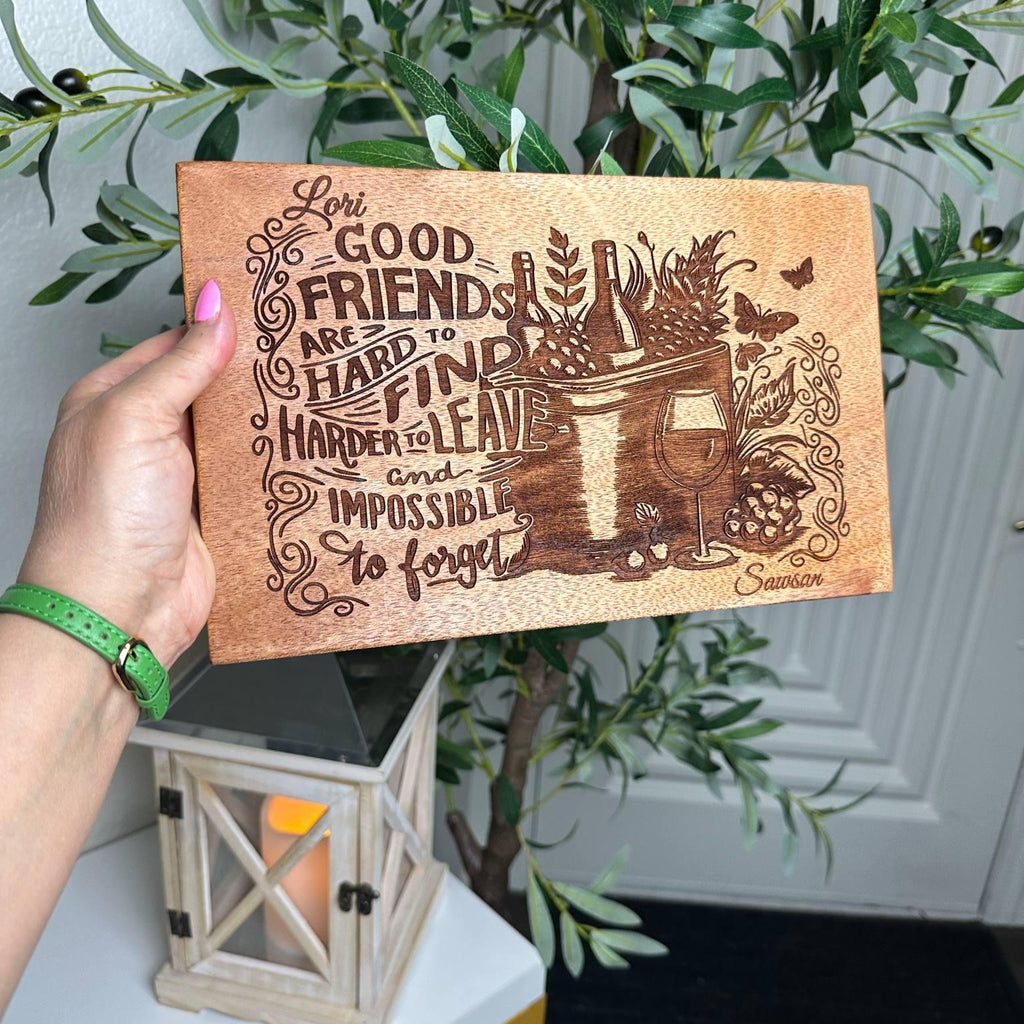 Lori
GOOD
FRIENDS
ARE HARD TO
FIND
HARDER TO LEAVE
and
IMPOSSIBLE
to forget
Sawsan